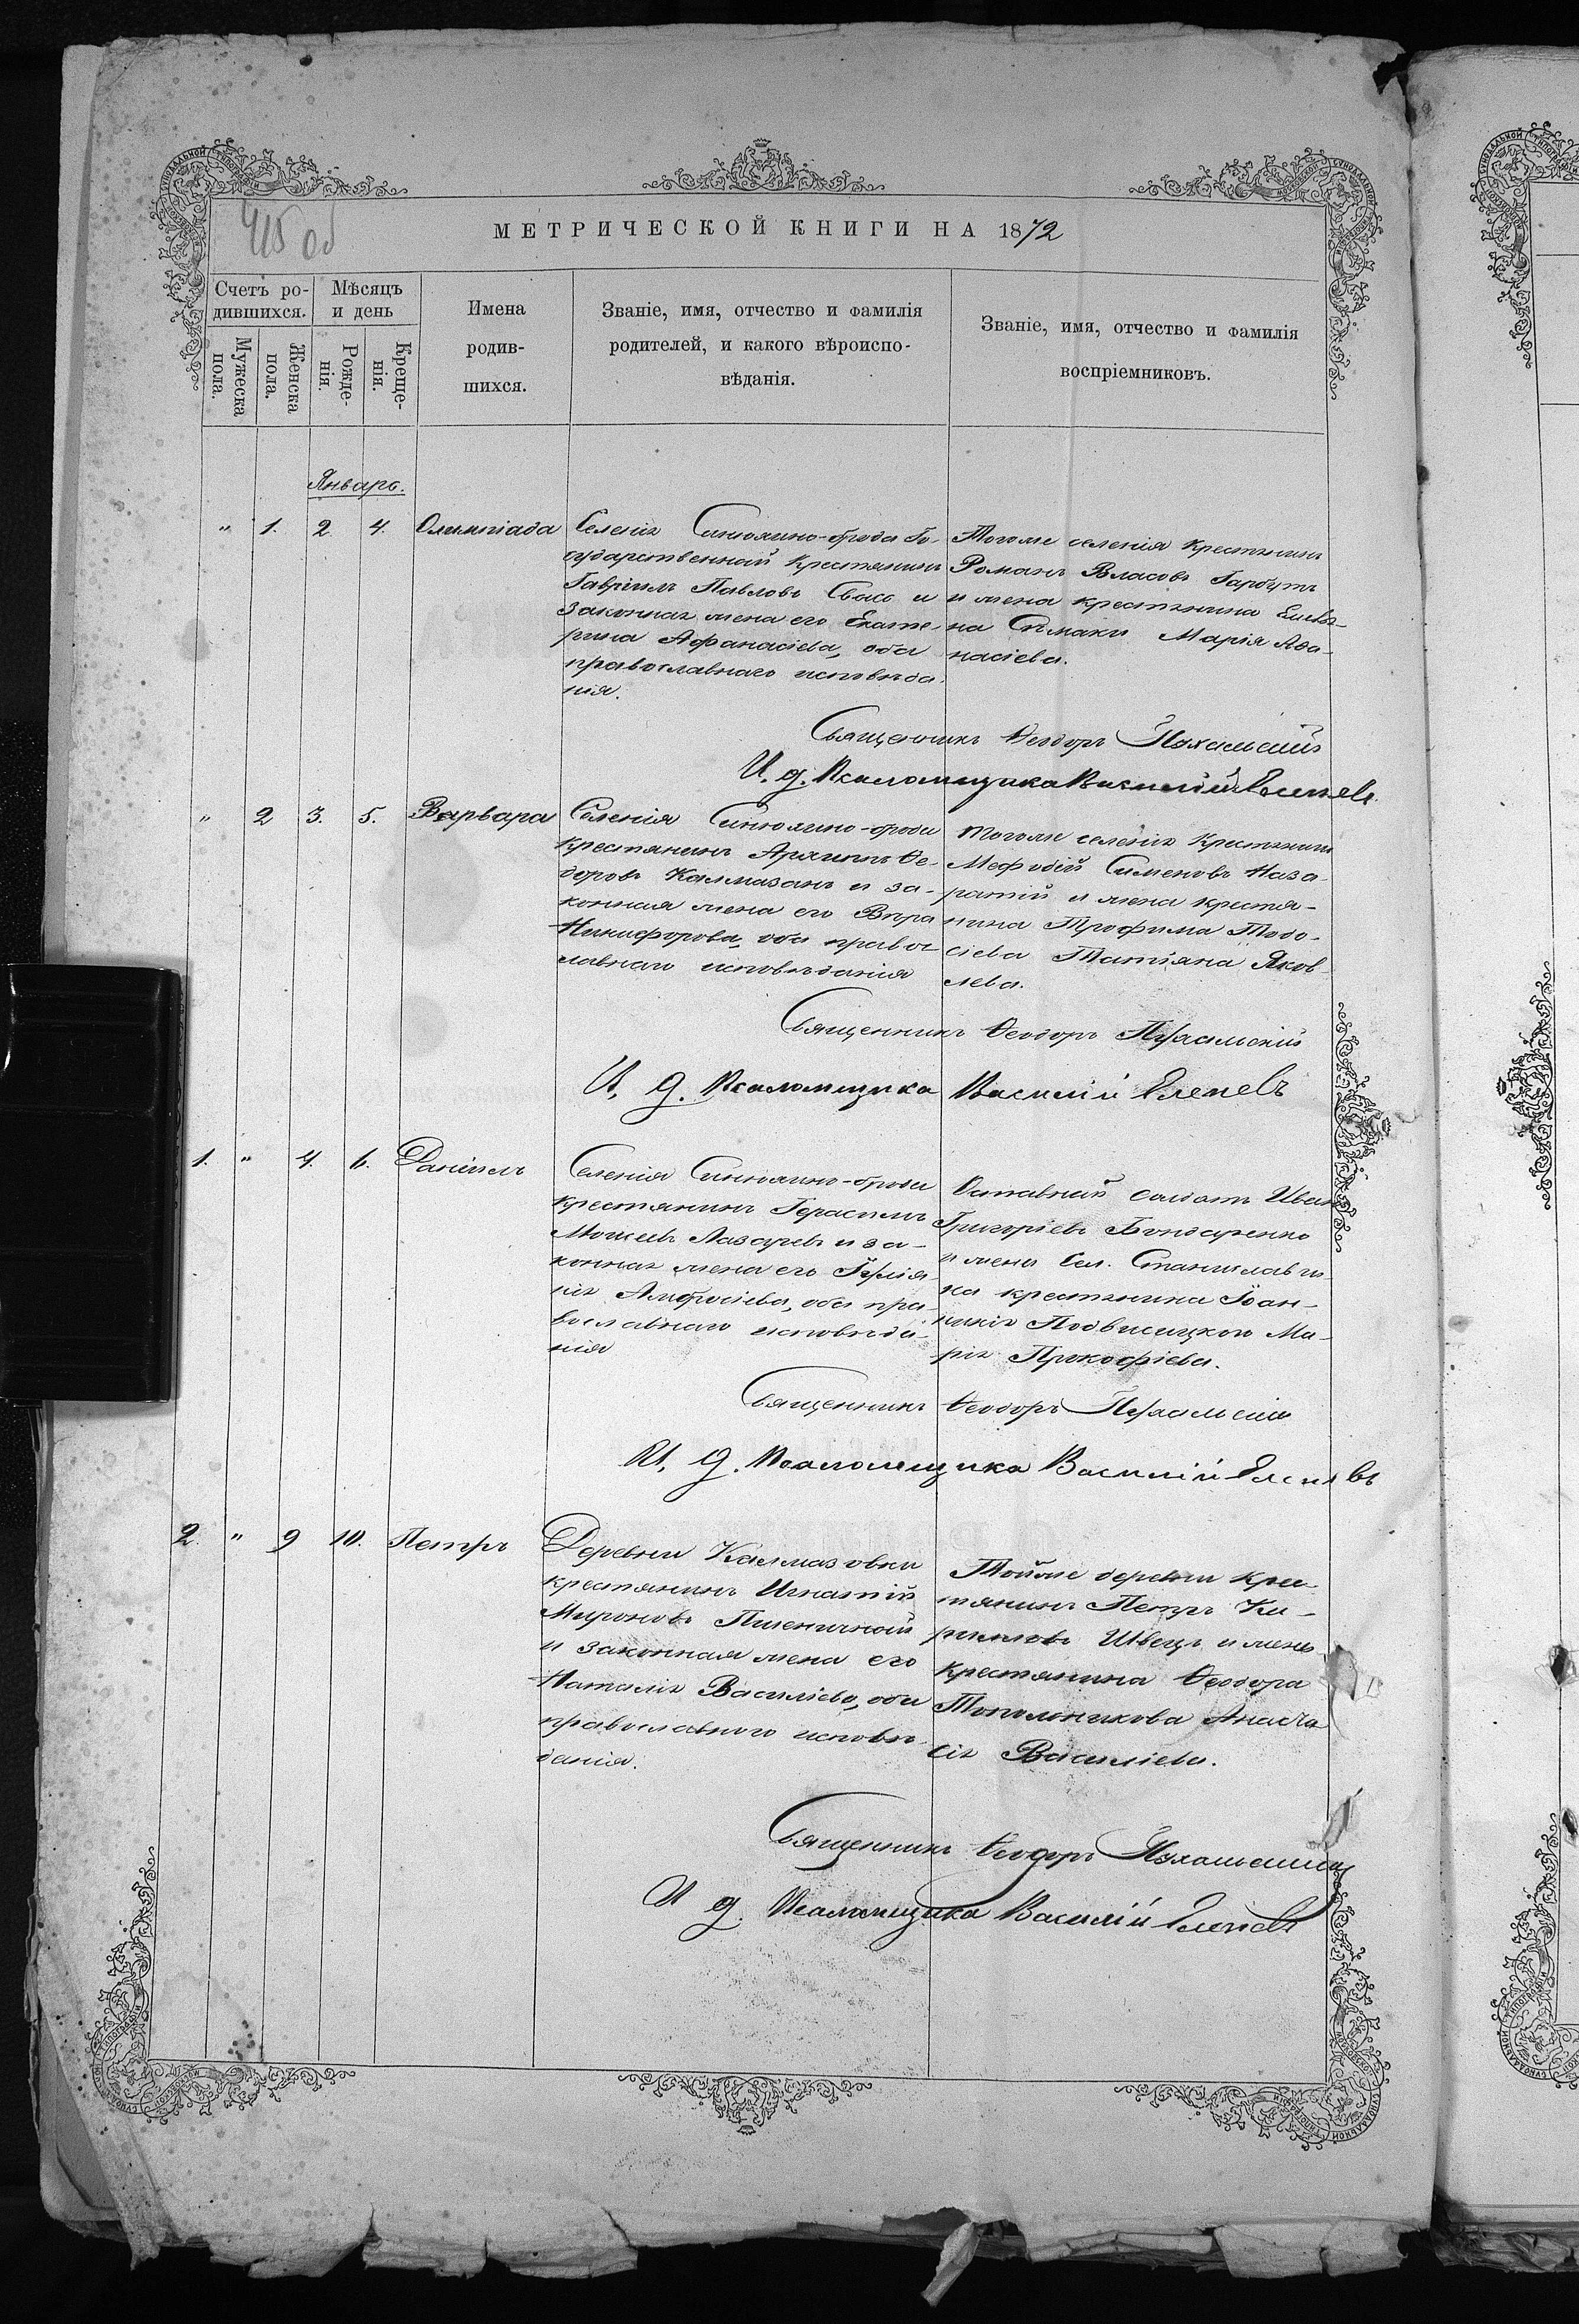 415 об
МЕТРИЧЕСКОЙ КНИГИ НА 1872
Счетъ ро-
дившихся.
Мѣсяцъ
и день
Мужеска
пола.
Женска
пола.
Рожде-
нія.
Креще-
нія.
Имена
родив-
шихся.
Званіе, имя, отчество и фамилія
родителей, и какого вѣроиспо-
вѣданія.
Званіе, имя, отчество и фамилія
воспріемниковъ.
Январь.
" 1. 2 4. Олимпіада
Селенія Синюхино-брода Го-
сударственный крестьянинъ
Гавріилъ Павловъ и
законная жена его Екате-
рина Афанасіева, оба
православнаго исповѣда-
нія.
Тогоже селенія крестьянинъ
Романъ Власовъ Гарбузъ
и жена крестьянина
на Марія Афа-
насіева.
Священникъ Ѳеодоръ
И. д. Псаломщика Василій Еленевъ
" 2 3. 5. Варвара
Селенія Синюхино-брода
крестьянинъ Архипъ Ѳе-
доровъ Калмазанъ и за-
конная жена его Вѣра
Никифорова, оба правос-
лавнаго исповѣданія
Тогоже селенія крестьянинъ
Мефодій Сименовъ Наза-
ратій и жена крестья-
нина Трофима Тодо-
сіева Татіяна Яков-
лева.
Священникъ Ѳеодоръ
И. д. Псаломщика Василій Еленевъ
1. " 4. 6. Даніилъ
Селенія Синюхино-брода
крестьянинъ Герасимъ
Мойсеевъ Лазаревъ и за-
конная жена его
Амвросіева, оба пра-
вославнаго исповѣда-
нія
Отставный солдатъ Иванъ
Григоріевъ Бондаренко
и жена сел. Станиславчи-
ка крестьянина Іоан-
никія Подвисоцкого Ма-
рія Прокофіева.
Священникъ Ѳеодоръ
И. д. Псаломщика Василій Еленевъ
2. " 9 10. Петръ
Деревни Калмазовки
крестьянинъ Игнатій
Мироновъ Пшеничный
и законная жена его
Наталія Василіева, оба
православного исповѣ-
данія.
Тойже деревни крес-
тьянинъ Петръ Ки-
риловъ Швецъ и жена
крестьянина Ѳеодора
Топольникова Анаста
сія Василіева.
Священникъ Ѳеодоръ
И д. Псаломщика Василій Еленевъ